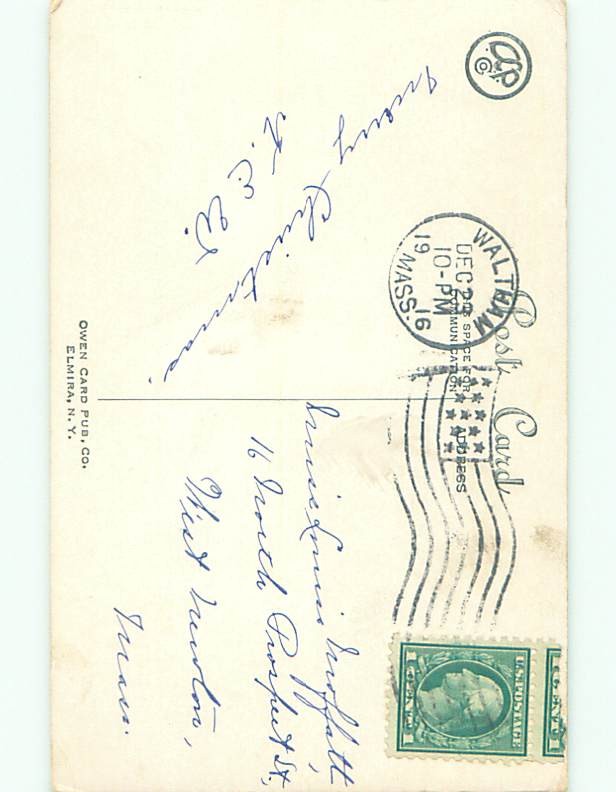 Post Card
THIS SPACE FOR COMMUNICATION
ADDRESS
WALTHAM
DEC 22
10-PM
19 16
MASS.
U.S. POSTAGE
1 CENT 1
Merry Christmas.
F. C. E.
Miss Louis Moffatt,
16 North Prospect St,
West Newton,
Mass.
OWEN CARD PUB. CO.
ELMIRA, N. Y.